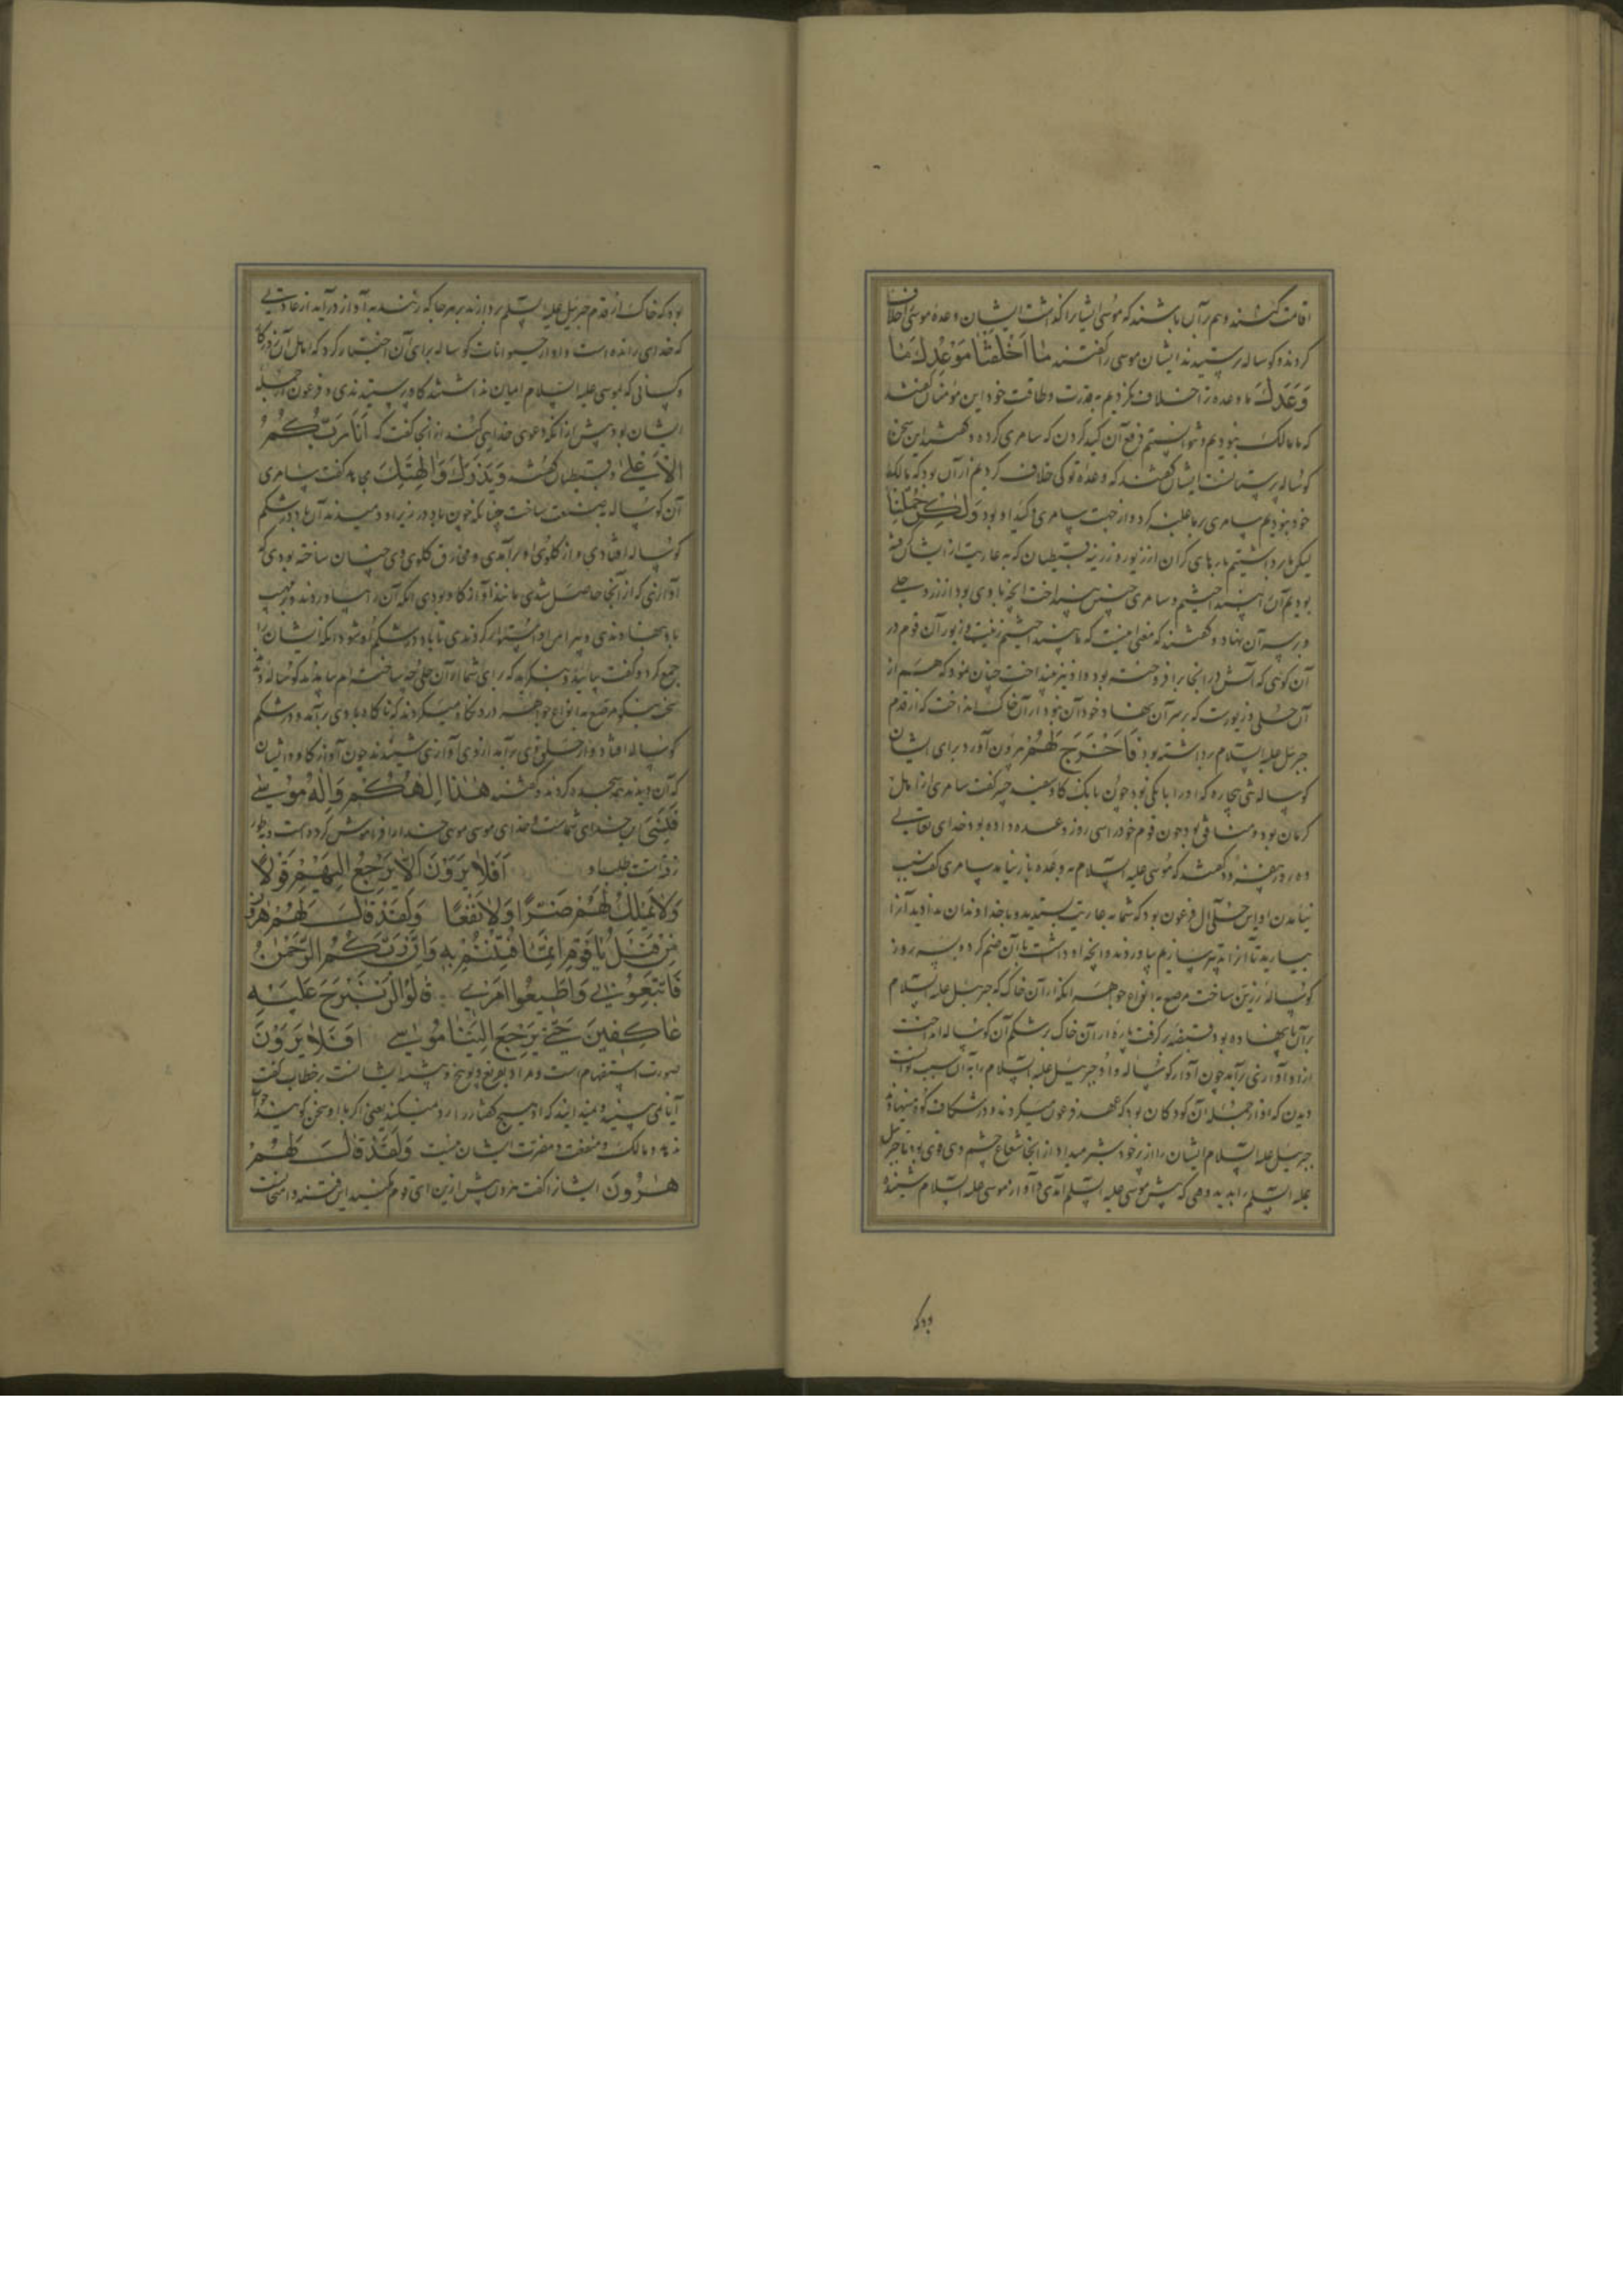 اقامت کنند و هم بر آن باشند که موسی ایشانرا گذاشت ایشان وعده موسی اخلاف
کردند و کوساله پرستیدند ایشان موسی را گفتند مَا اَخْلَفْنَا مَوْعِدَكَ مَا
وَعَدَكَ ما وعده ترا خلاف نکردیم به قدرت و طاقت خود این مؤمنان گفتند
که ما مالک نبودیم و نتوانستیم دفع آن کید کردن که سامری کرده و گفته‌اند این سخن
کوساله پرستانست ایشان گفتند که وعده تو کی خلاف کردیم از آن بود که مالک
خود نبودیم سامری بر ما غلبه کرد و از جهت سامری و کید او بود وَلٰكِنَّا حُمِّلْنَا
لیکن ما برداشتیم بارهای گران از زیور و زرینه قبطیان که به عاریت از ایشان گرفته
بودیم آن را بینداختیم و سامری چنین بینداخت آنچه با وی بود از زر و حلی
و بر سر آن نهاد و گفته‌اند که معنی اینست که ما بینداختیم زینت و زیور آن قوم در
آن کوی که آتش در انجا برافروخته بود و او نیز بینداخت چنان نمود که هم از
آن حلی و زیورست که بر سر آن نهاد و خود آن نبود از آن خاک انداخت که از قدم
جبرئیل علیه السلام برداشته بود فَاَخْرَجَ لَهُمْ بیرون آورد برای ایشان
کوساله تنی بیچاره که او را بانکی بود چون بانک کاو سعید جبیر گفت سامری از اهل
کرمان بود و منافق بود چون قوم خود را سی روز وعده داده بود خدای تعالی
ده روز بیفزود گفتند که موسی علیه السلام به وعده باز نیامد سامری گفت سبب
نیامدن او این حلی آل فرعون بود که شما به عاریت بستدید و با خداوندان ندادید آنرا
بیارید تا آنرا تدبیر سازیم بیاوردند و آنچه او داشت با آن ضم کرد و به سه روز
کوساله زرین ساخت مرصع به انواع جواهر آنگه از آن خاک که جبرئیل علیه السلام
بر آن پا نهاده بود قبضه بر گرفت پاره از آن خاک بر شکم آن کوساله انداخت
از او آوازی برآمد چون آواز کوساله و او جبرئیل علیه السلام را به آن سبب توانست
دیدن که او از جمله آن کودکان بود که عهد فرعون میکردند و در شکاف کوه مینهاد
جبرئیل علیه السلام ایشان را از پر خود شیر میداد از آنجا شعاع چشم وی قوی بود تا جبرئیل
علیه السلام را بدید وقتی که پیش موسی علیه السلام آمدی و او از موسی علیه السلام شنیده
بود که
بود که خاک از قدم جبرئیل علیه السلام بردارند بر هر جا که زنند به آواز درآید از عادتی
که خدای رانده است و او از حیوانات کوساله برای آن اختیار کرد که اهل آن روزکار
و کسانی که بموسی علیه السلام ایمان نداشتند کاو پرستیدندی و فرعون از جمله
ایشان بود پیش از آنکه دعوی خدایی کند از آنجا گفت که اَنَا رَبُّكُمُ
الْاَعْلٰی و قبطیان گفتند وَيَذَرَكَ وَاٰلِهَتَكَ مجاهد گفت سامری
آن کوساله به صنعت ساخت چنانکه چون باد در زیر او دمیدند آن باد در شکم
کوساله افتادی و از کلوی او برآمدی و مخارق کلوی وی چنان ساخته بودی که
آوازی که از آنجا حاصل شدی مانند آواز کاو بودی آنگه آن را بیاوردند و در مهب
باد بنهادندی و پیرامن او استوار کردندی تا باد در شکم او شود آنگه ایشان را
جمع کرد و گفت بیائید و بنگرید که برای شما از آن حلی چه ساختم بیامدند کوساله دیدند
سخت نیکو مرصع به انواع جواهر در او نگاه میکردند که ناکاه بادی برآمد و در شکم
کوساله افتاد و از حلق وی برآمد از وی آوازی شنیدند چون آواز کاو و ایشان
که آن دیدند همه سجده کردند و گفتند هٰذَا اِلٰهُكُمْ وَاِلٰهُ مُوسٰى
فَنَسِيَ این خدای شماست و خدای موسی موسی خدا را فراموش کرده است و به طور
رفته است بطلب او اَفَلَا يَرَوْنَ اَلَّا يَرْجِعُ اِلَيْهِمْ قَوْلًا
وَلَا يَمْلِكُ لَهُمْ ضَرًّا وَلَا نَفْعًا وَلَقَدْ قَالَ لَهُمْ هٰرُونُ
مِنْ قَبْلُ يَا قَوْمِ اِنَّمَا فُتِنْتُمْ بِهِ وَاِنَّ رَبَّكُمُ الرَّحْمٰنُ
فَاتَّبِعُونِي وَاَطِيعُوا اَمْرِي قَالُوا لَنْ نَبْرَحَ عَلَيْهِ
عَاكِفِينَ حَتّٰى يَرْجِعَ اِلَيْنَا مُوسٰى اَفَلَا يَرَوْنَ
صورت استفهام است و مراد تقریع و توبیخ و تنبیه ایشانست بر خطاب گفت
آیا نمی بینید و نمیدانید که او هیچ گفتار رد نمیکند یعنی اگر با او سخن گویند جواب
ندهد و مالک منفعت و مضرت ایشان نیست وَلَقَدْ قَالَ لَهُمْ
هٰرُونُ ایشانرا گفت هرون پیش ازین ای قوم مکنید این فتنه و امتحانست